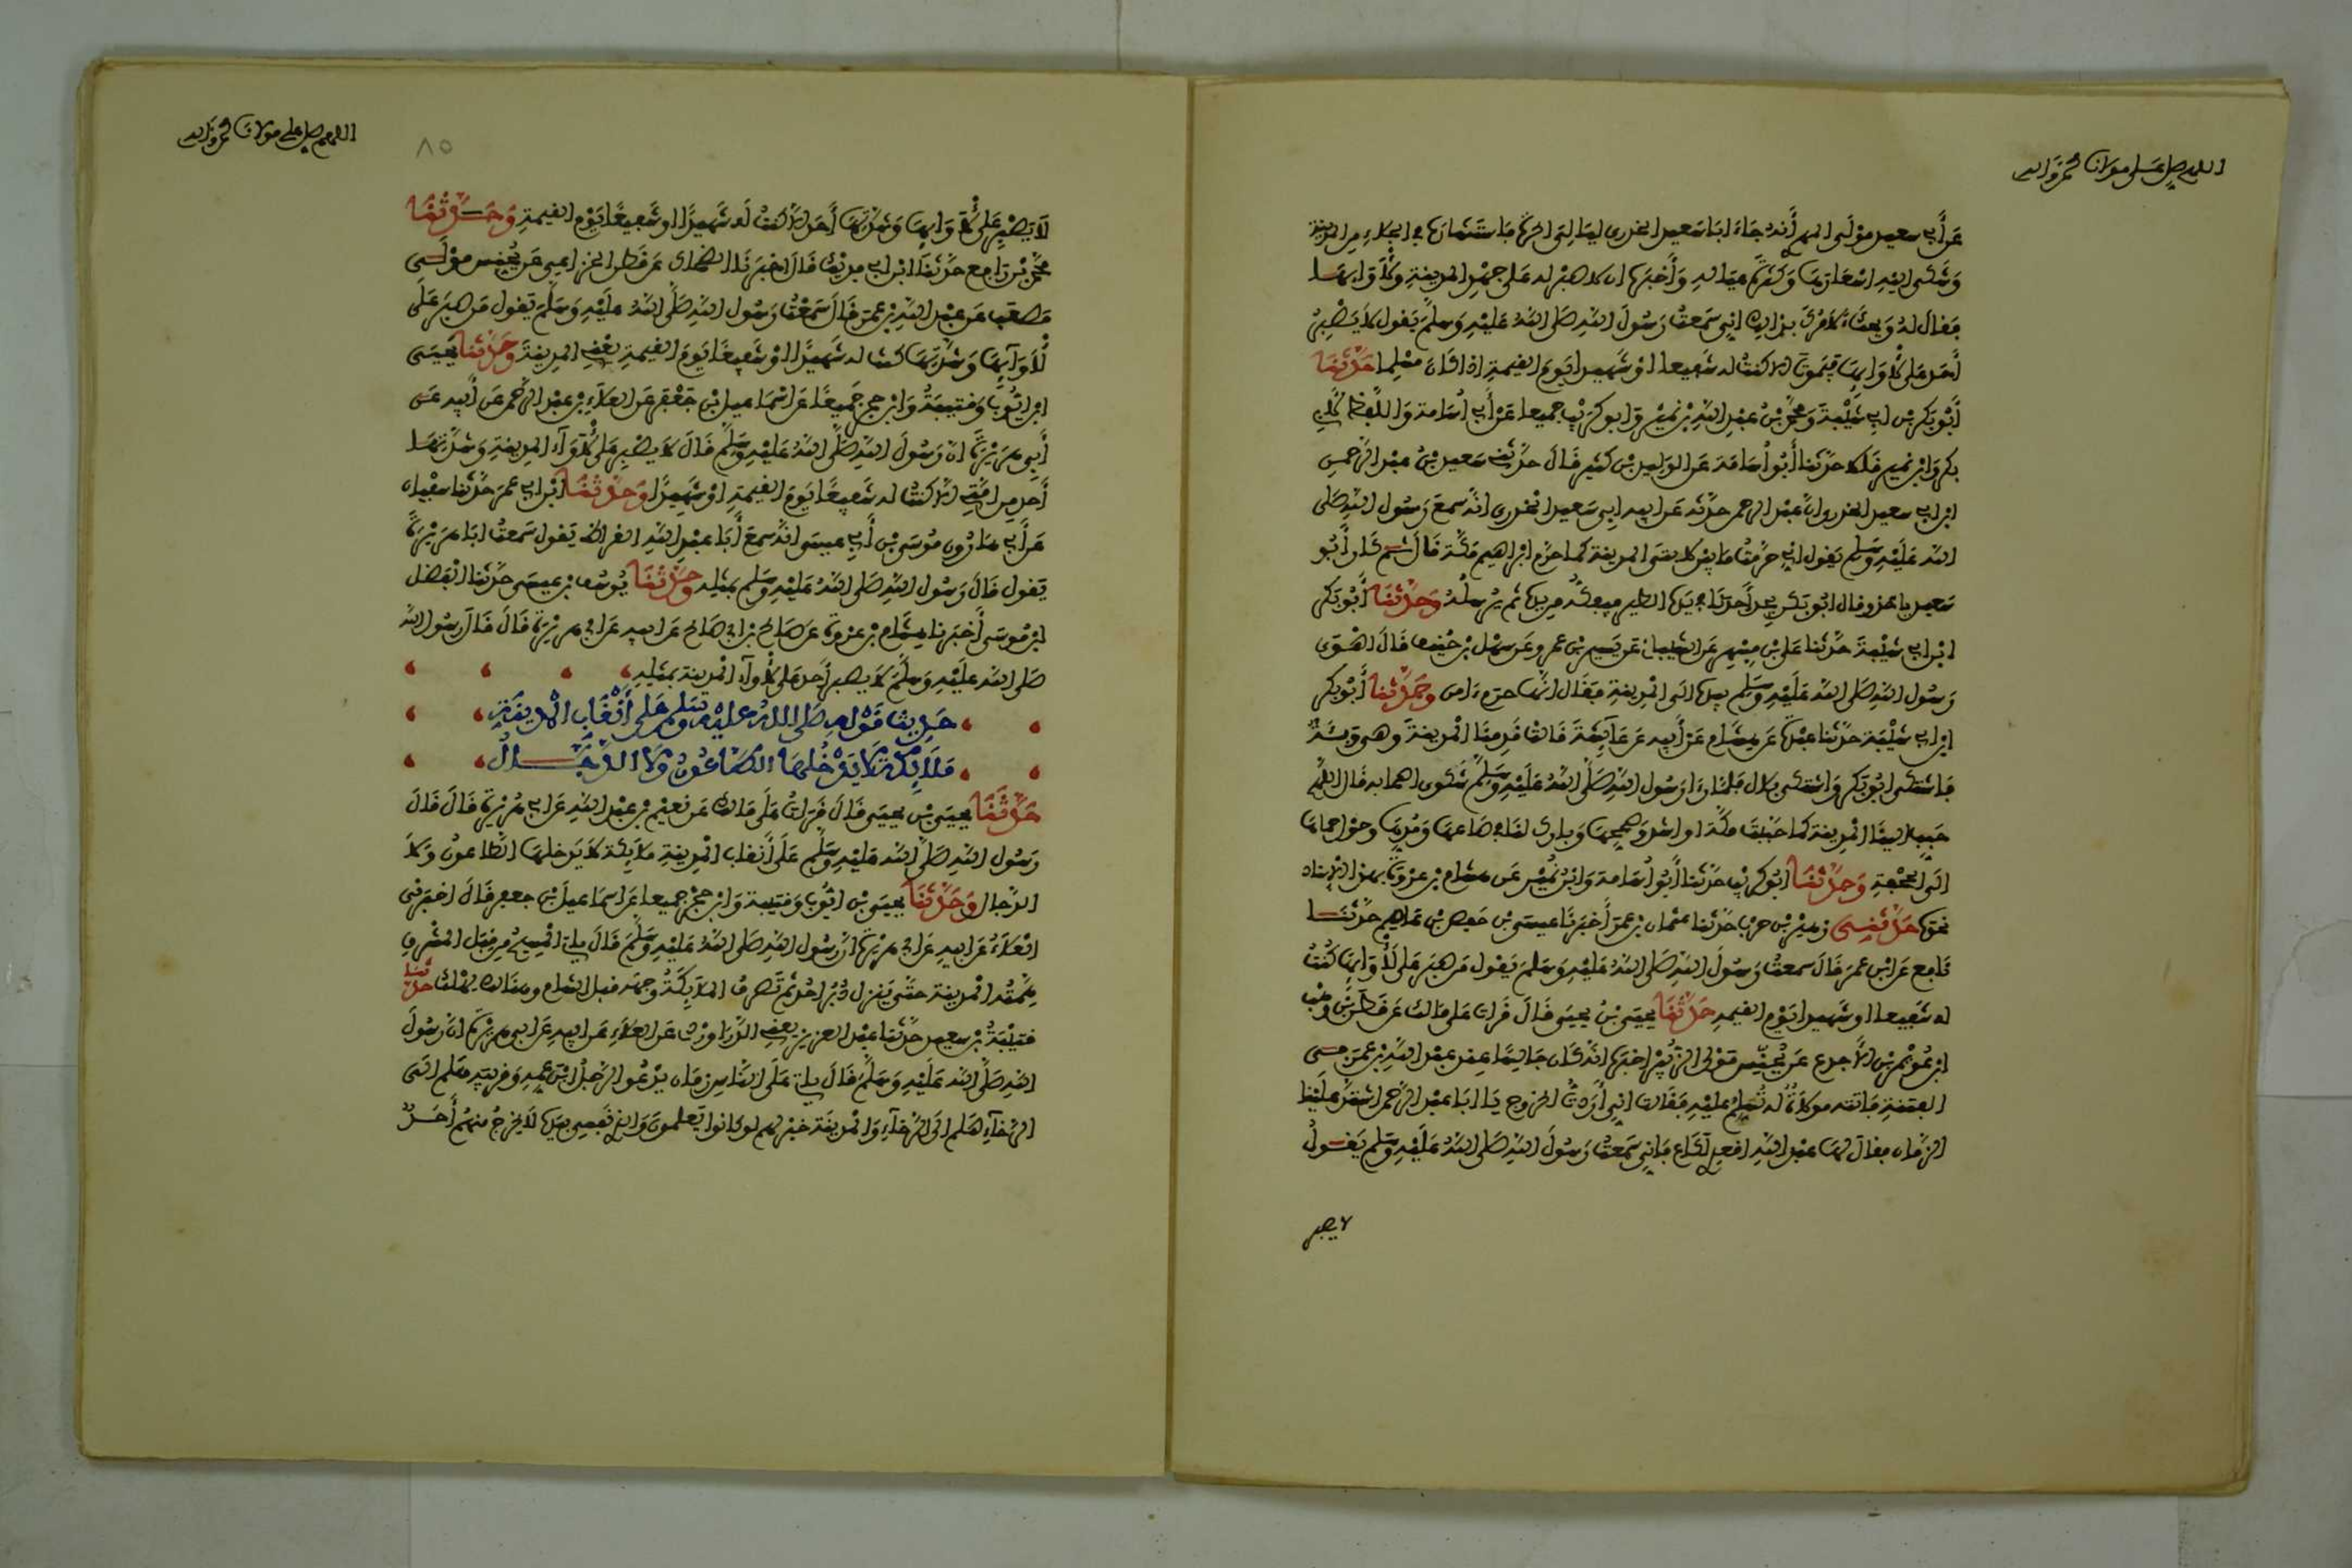 اللهم صل على مولانا محمد وءاله
عن أبي سعيد مولى المهري أنه جاء ابا سعيد الخدري ليالي الحرة فاستشاره في الجلاء من المدينة
وشكى إليه اسعارها وكثرة عياله وأخبره ان لا صبر له على جهد المدينة ولأوائها
فقال له ويحك لا ءامرك بذالك اني سمعت رسول الله صلى الله عليه وسلم يقول لا يصبر
أحد على لأوائها فيموت الا كنت له شفيعا او شهيدا يوم القيمة اذا كان مسلما حدثنا
أبو بكر بن ابي شيبة ومحمد بن عبد الله بن نمير وابو كريب جميعا عن أبي أسامة واللفظ لابي
بكر وابن نمير قالا حدثنا أبو أسامة عن الوليد بن كثير قال حدثني سعيد بن عبد الرحمن
ابن ابي سعيد الخدري ان عبد الرحمن حدثه عن ابيه ابي سعيد الخدري انه سمع رسول الله صلى
الله عليه وسلم يقول اني حرمت ما بين لابتي المدينة كما حرم ابراهيم مكة قال ثم كان أبو
سعيد ياخذ وقال ابو بكر يجد أحدنا في يده الطير فيفكه من يده ثم يرسله وحدثنا أبو بكر
ابن ابي شيبة حدثنا علي بن مسهر عن الشيباني عن يسير بن عمرو عن سهل بن حنيف قال اهوى
رسول الله صلى الله عليه وسلم بيده الى المدينة فقال انها حرم ءامن وحدثنا أبو بكر
ابن ابي شيبة حدثنا عبدة عن هشام عن أبيه عن عائشة قالت قدمنا المدينة وهي وبئة
فاشتكى ابو بكر واشتكى بلال فلما رءا رسول الله صلى الله عليه وسلم شكوى اصحابه قال اللهم
حبب الينا المدينة كما حببت مكة او اشد وصححها وبارك لنا في صاعها ومدها وحول حماها
الى الجحفة وحدثنا ابو كريب حدثنا أبو أسامة وابن نمير عن هشام بن عروة بهذا الاسناد
نحوه حدثني زهير بن حرب حدثنا عثمان بن عمر أخبرنا عيسى بن حفص بن عاصم حدثنا
نافع عن ابن عمر قال سمعت رسول الله صلى الله عليه وسلم يقول من صبر على لأوائها كنت
له شفيعا او شهيدا يوم القيمة حدثنا يحيى بن يحيى قال قرات على مالك عن قطن بن وهب
ابن عويمر بن الاجدع عن يحنس مولى الزبير اخبره انه كان جالسا عند عبد الله بن عمر في
الفتنة فاتته مولاة له تسلم عليه فقالت اني أردت الخروج يا ابا عبد الرحمن اشتد علينا
الزمان فقال لها عبد الله اقعدي لكاع فاني سمعت رسول الله صلى الله عليه وسلم يقول
لا يصبر
اللهم صل على مولانا محمد وءاله
٨٥
لا يصبر على لأوائها وشدتها أحد الا كنت له شهيدا او شفيعا يوم القيمة وحدثنا
محمد بن رافع حدثنا ابن ابي فديك قال اخبرنا الضحاك عن قطن الخزاعي عن يحنس مولى
مصعب عن عبد الله بن عمر قال سمعت رسول الله صلى الله عليه وسلم يقول من صبر على
لأوائها وشدتها كنت له شهيدا او شفيعا يوم القيمة يعني المدينة وحدثنا يحيى
ابن ايوب وقتيبة وابن حجر جميعا عن اسماعيل بن جعفر عن العلاء بن عبد الرحمن عن أبيه عن
أبي هريرة ان رسول الله صلى الله عليه وسلم قال لا يصبر على لأواء المدينة وشدتها
أحد من امتي الا كنت له شفيعا يوم القيمة او شهيدا وحدثنا ابن ابي عمر حدثنا سفيان
عن أبي هارون موسى بن أبي عيسى انه سمع أبا عبد الله القراظ يقول سمعت ابا هريرة
يقول قال رسول الله صلى الله عليه وسلم بمثله وحدثنا يوسف بن عيسى حدثنا الفضل
ابن موسى أخبرنا هشام بن عروة عن صالح بن ابي صالح عن ابيه عن ابي هريرة قال قال رسول الله
صلى الله عليه وسلم لا يصبر أحد على لأواء المدينة بمثله
حديث قوله صلى الله عليه وسلم على أنقاب المدينة
ملائكة لا يدخلها الطاعون ولا الدجال
حدثنا يحيى بن يحيى قال قرات على مالك عن نعيم بن عبد الله عن ابي هريرة قال قال
رسول الله صلى الله عليه وسلم على أنقاب المدينة ملائكة لا يدخلها الطاعون ولا
الدجال وحدثنا يحيى بن ايوب وقتيبة وابن حجر جميعا عن اسماعيل بن جعفر قال اخبرني
العلاء عن ابيه عن ابي هريرة ان رسول الله صلى الله عليه وسلم قال ياتي المسيح من قبل المشرق
همته المدينة حتى ينزل دبر احد ثم تصرف الملائكة وجهه قبل الشام وهنالك يهلك حدثنا
قتيبة بن سعيد حدثنا عبد العزيز يعني الدراوردي عن العلاء عن ابيه عن ابي هريرة ان رسول
الله صلى الله عليه وسلم قال ياتي على الناس زمان يدعو الرجل ابن عمه وقريبه هلم الى
الرخاء هلم الى الرخاء والمدينة خير لهم لو كانوا يعلمون والذي نفسي بيده لا يخرج منهم أحد